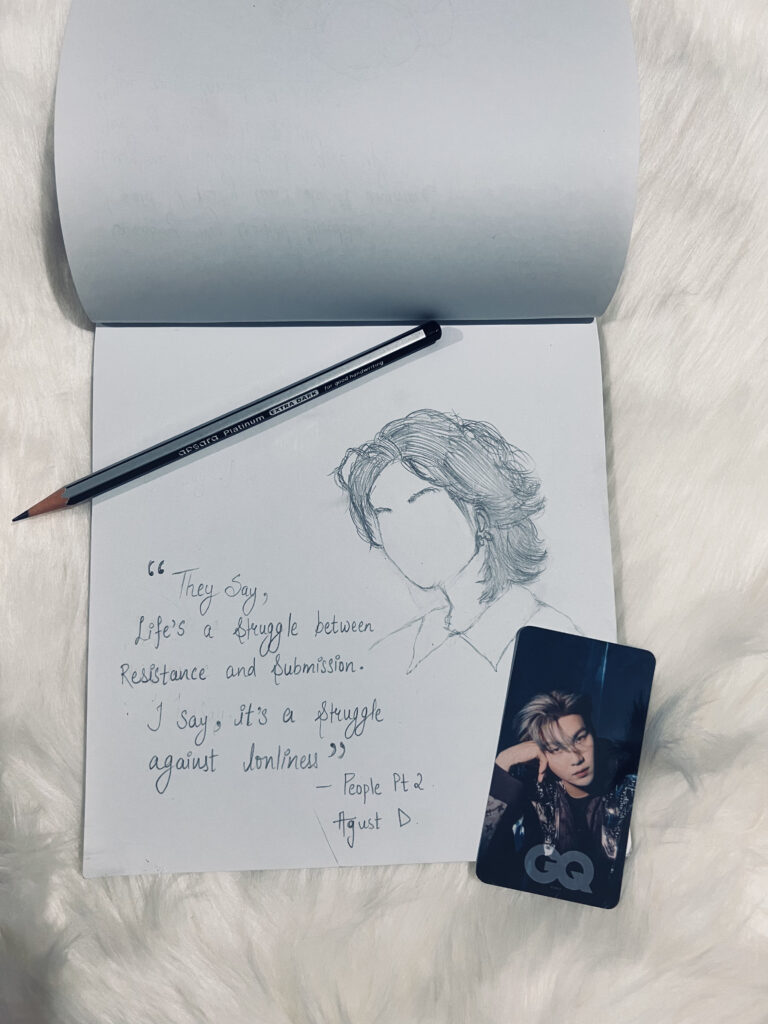 apsara Platinum EXTRA DARK for good handwriting
“They Say,
Life's a Struggle between
Resistance and Submission.
I say, it's a Struggle
against lonliness”
– People Pt 2.
Agust D.
GQ